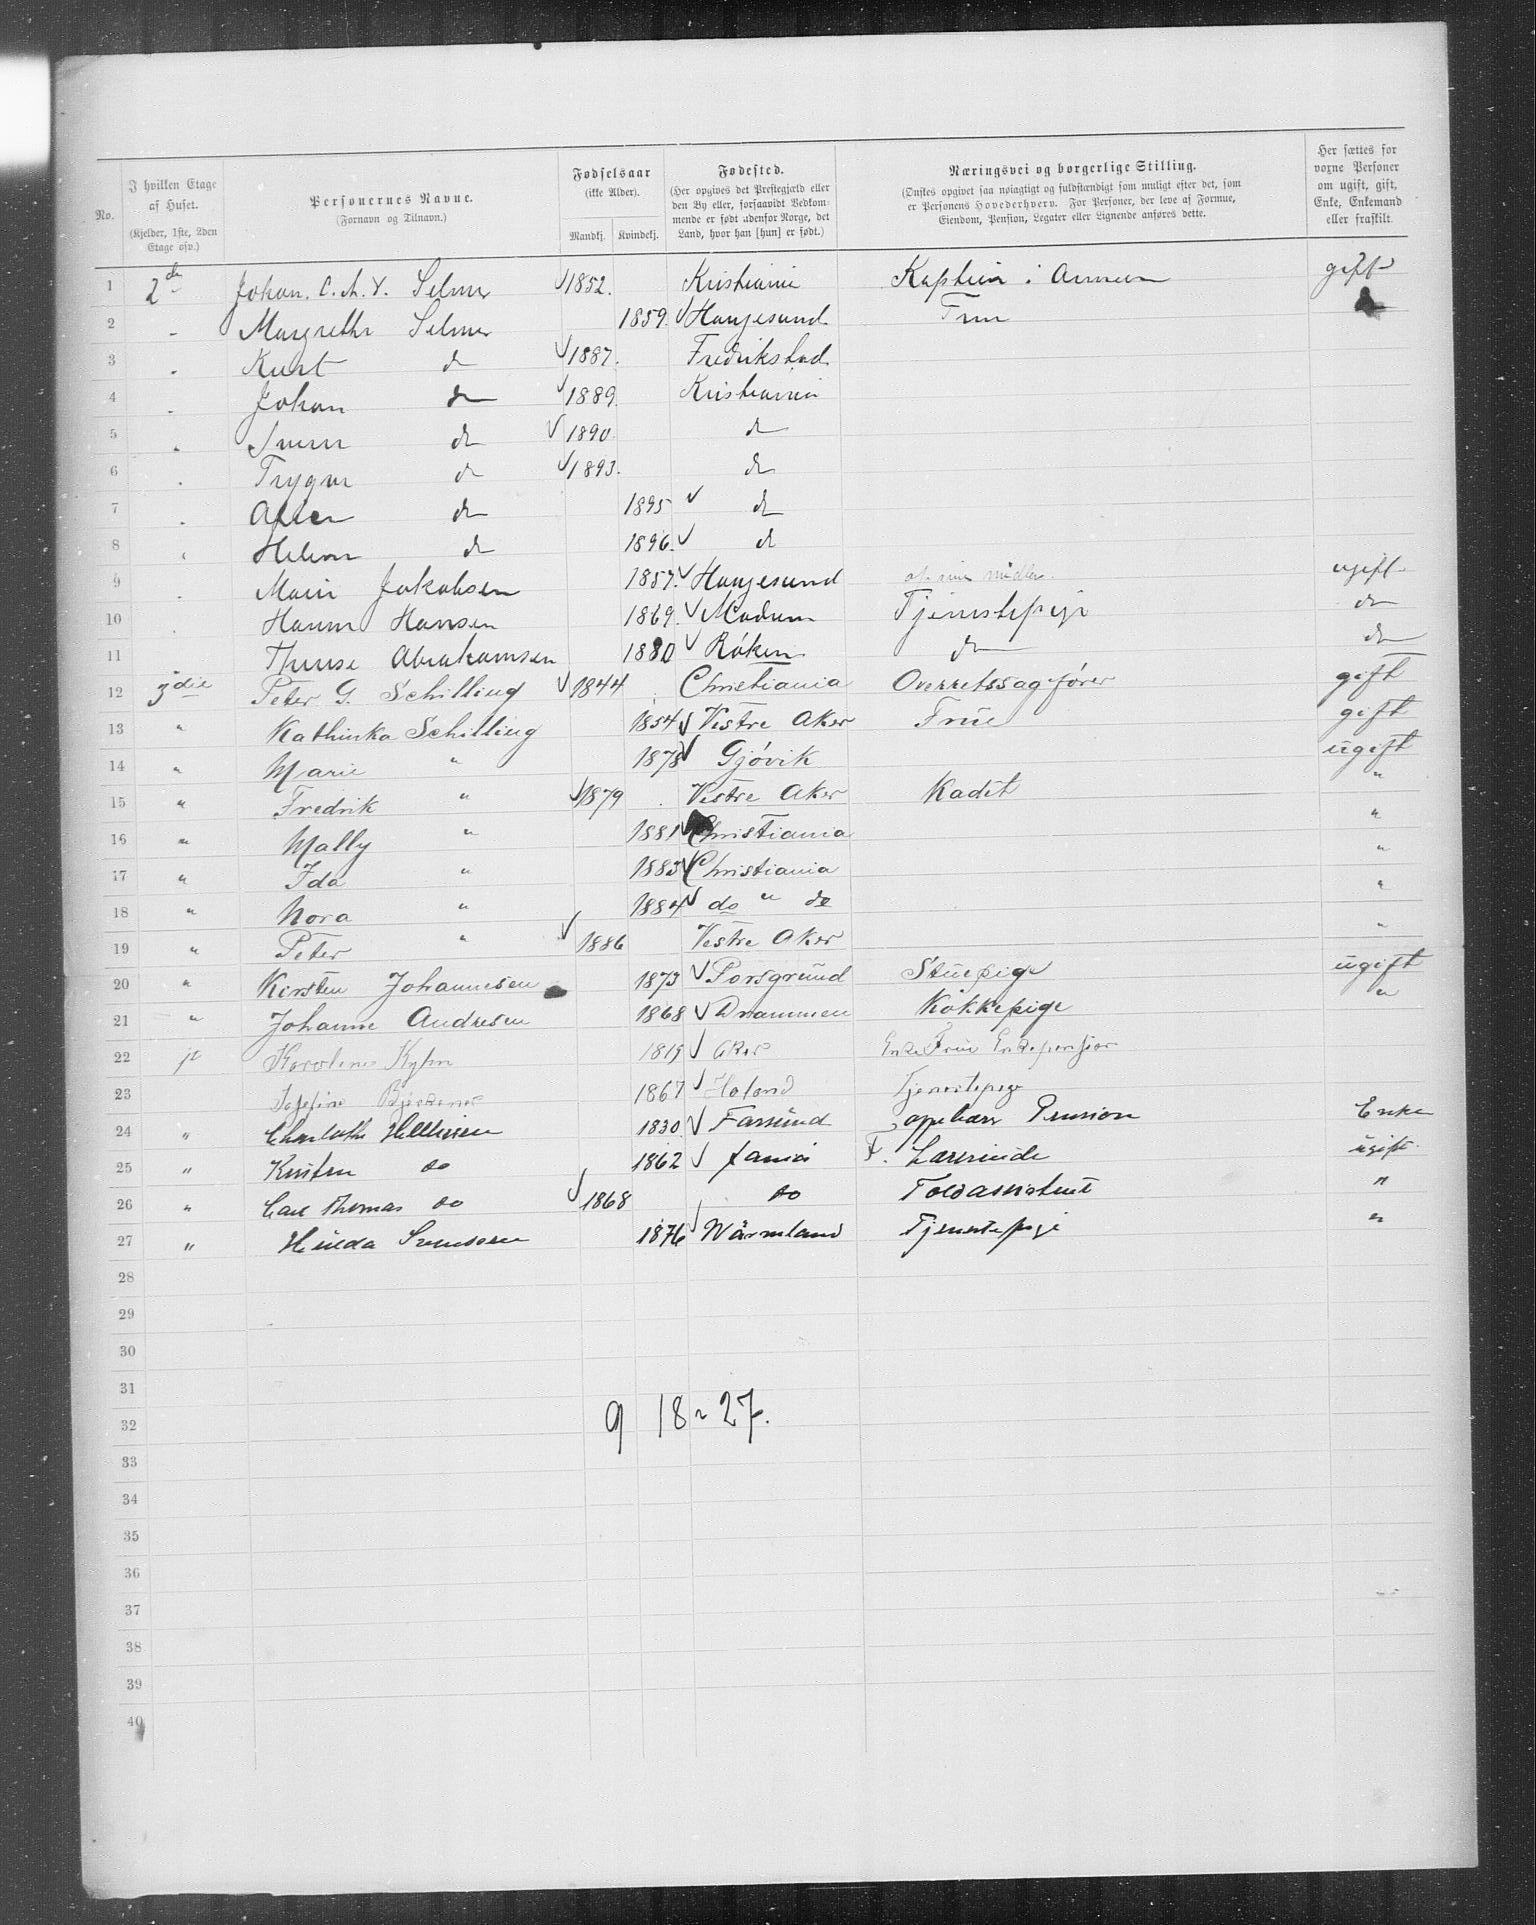 No.
I hvilken Etage af Huset. (Kjelder, 1ste, 2den Etage osv.)
Personernes Navne. (Fornavn og Tilnavn.)
Fødselsaar (ikke Alder). Mandkj. Kvindekj.
Fødested. (Her opgives det Prestegjæld eller den By eller, forsaavidt Vedkommende er født udenfor Norge, det Land, hvor han [hun] er født.)
Næringsvei og borgerlige Stilling. (Ønskes opgivet saa nøiagtigt og fuldstændigt som muligt efter det, som er Personens Hovederhverv. For Personer, der leve af Formue, Eiendom, Pension, Legater eller Lignende anføres dette.
Her sættes for voxne Personer om ugift, gift, Enke, Enkemand eller fraskilt.
1 2de Johan. C. A. V. Selmer 1852. Kristiania Kaptein i Armeen gift
2 Margrethe Selmer 1859. Haugesund Frue
3 Kurt do 1887. Fredrikstad
4 Johan do 1889. Kristiania
5 do 1890. do
6 Trygve do 1893. do
7 do 1895 do
8 Helene do 1896. do
9 Marie Jakobsen 1857. Haugesund af sine midler. ugift
10 Hanna Hansen 1869. Modum Tjenestepige do
11 Abrahamsen 1880 Røken do do
12 3die Peter G. Schilling 1844 Christiania Overretssagfører gift
13 " Kathinka Schilling 1854 Vestre Aker Frue gift
14 " Marie " 1878 Gjøvik ugift
15 " Fredrik " 1879 Vestre Aker Kadet "
16 " Mally " 1881 Christiania "
17 " Ida " 1883 Christiania "
18 " Nora " 1884 do " do "
19 " Peter " 1886 Vestre Aker "
20 " Kirsten Johannesen 1873 Porsgrund Stuepige ugift
21 " Johanne Andresen 1868 Drammen Kokkepige "
22 Karoline 1819 Aker Enke Frue Enkepension
23 Josefine 1867 Høland Tjenestepige
24 " Charlotte 1830. Farsund Pension Enke
25 " Kirsten do 1862 Lærerinde ugift
26 " Carl Thomas do 1868 do Toldassistent "
27 " Hilda Svensson 1876 Wärmland Tjenestepige "
28
29
30
31
32
33
34
35
36
37
38
39
40
9 18 - 27.